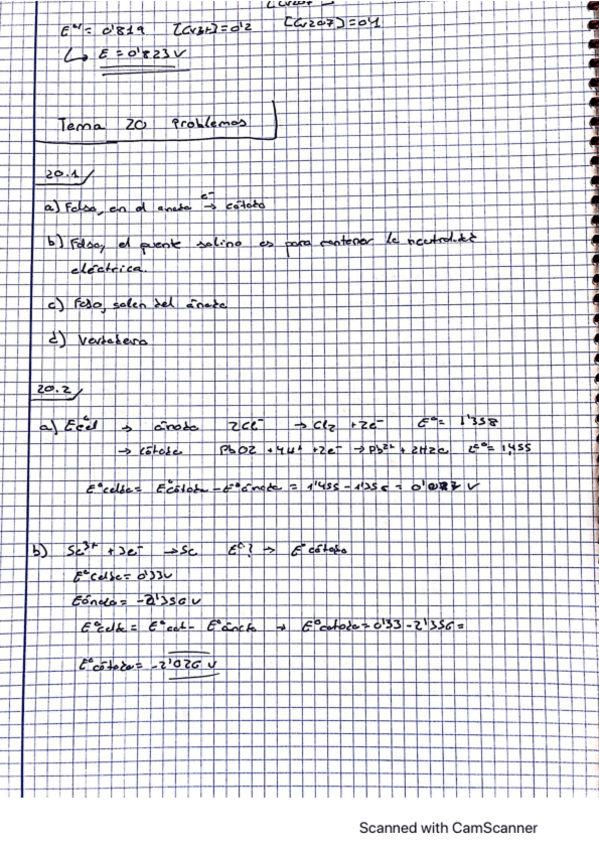 E'' = 0'819 [Cr3+]=0'2 [Cr2O7]=0'1
↳ E = 0'823 V
Tema 20 Problemas
20.1
a) Falso, en el anodo e⁻ → cátodo
b) Falso, el puente salino es para mantener la neutralidad
eléctrica.
c) Falso, salen del ánodo
d) Verdadero
20.2
a) E°cel → ánodo 2Cl⁻ → Cl2 + 2e⁻ E°= 1'358
→ cátodo PbO2 + 4H⁺ + 2e⁻ → Pb²⁺ + 2H2O E°= 1,455
E°celda = E°cátodo - E°ánodo = 1'455 - 1'358 = V
b) Sc³⁺ + 3e⁻ → Sc E°? → E°cátodo
E°celda = 0'33 V
Eánodo = -2'356 V
E°celda = E°cat - E°ánodo → E°catodo = 0'33 - 2'356 =
E°cátodo = -2'026 V
Scanned with CamScanner